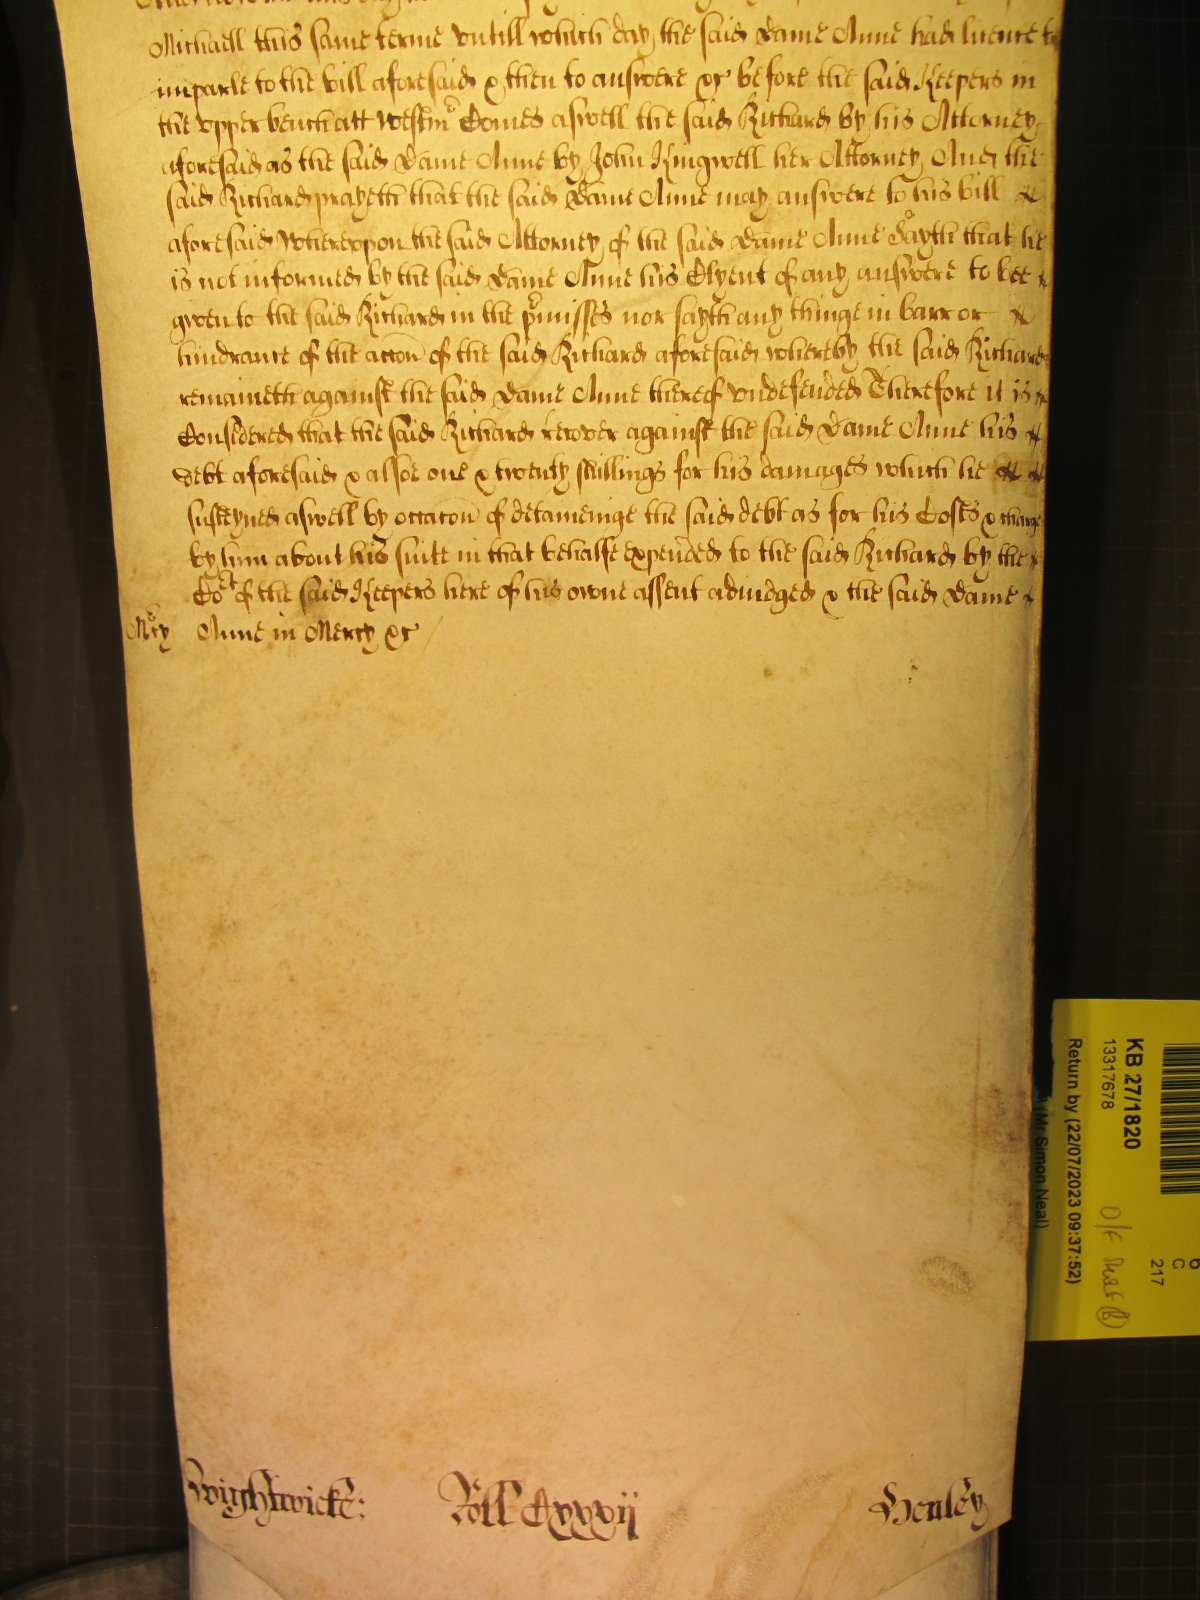 Michaell this same terme vntill which day the said Dame Anne had licence to
imparle to the bill aforesaid & then to answere &c before the said Keepers in
the vpper bench att Westmr Comes aswell the said Richard by his Attorney
aforesaid as the said Dame Anne by John Kingwell her Attorney And the
said Richard prayeth that the said Dame Anne may answere to his bill
aforesaid Wherevpon the said Attorney of the said Dame Anne Sayth that he
is not informed by the said Dame Anne his Clyent of any answere to bee
given to the said Richard in the pr̃misses nor sayth any thinge in barr or
hindrance of the accon of the said Richard aforesaid whereby the said Richard
remaineth against the said Dame Anne thereof vndefended Therefore it is
Considered that the said Richard recover against the said Dame Anne his
debt aforesaid & alsoe one & twenty shillings for his damages which he
susteyned aswell by occacon of deteineinge the said debt as for his Costs & charge
by him about his suite in that behalfe expended to the said Richard by the
Cort of the said Keepers here of his owne assent adiudged & the said Dame
Mrcy Anne in Mercy &c
Wightwicke: Roll Cxxxij Henley
KB 27/1820
13317678
Return by (22/07/2023 09:37:52)
(Mr Simon Neal)
6
C
217